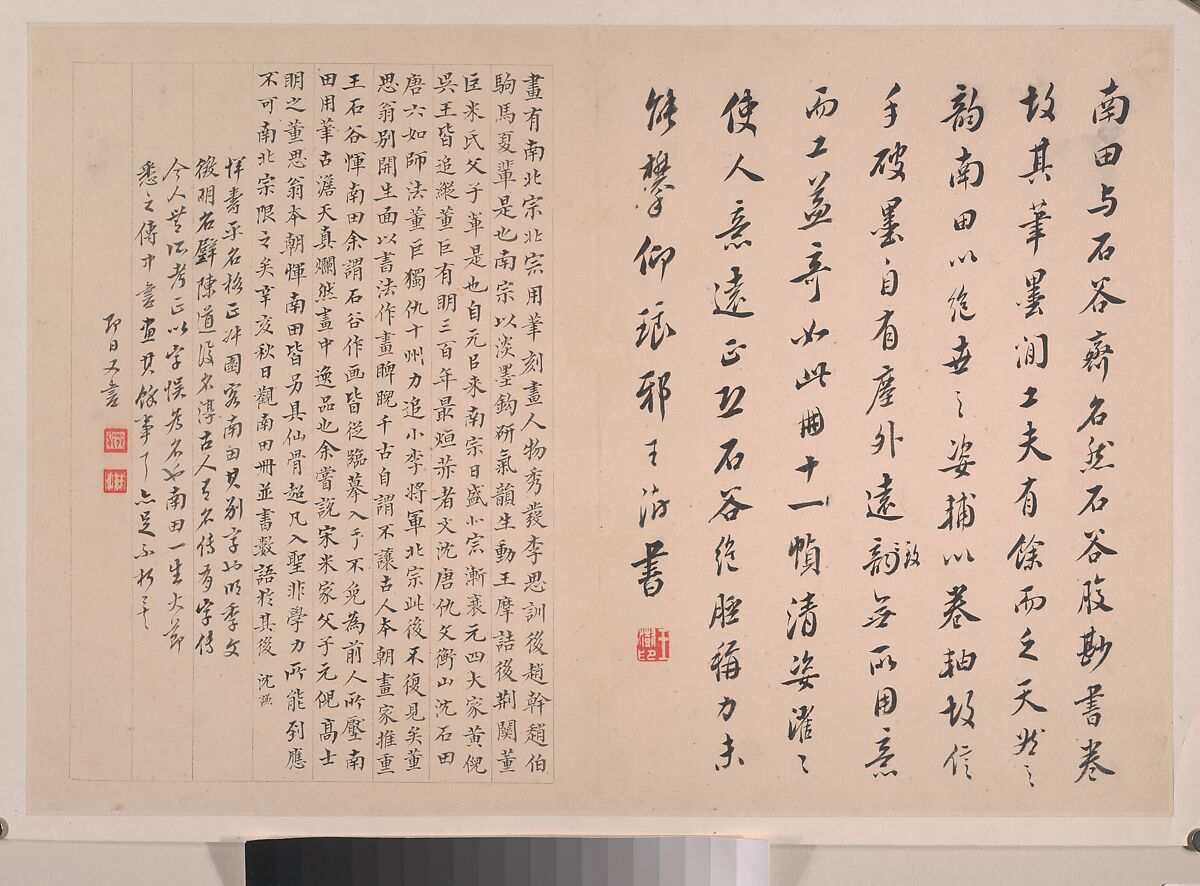 南田与石谷齊名然石谷腹尠書卷
故其筆墨間工夫有餘而乏天然之
韵南田以絶世之姿捕以卷軸故信
手破墨自有塵外遠韵致無所用意
而工益奇如此冊十一幀清姿濯濯
使人意遠正恐石谷絶臏稱力未
能攀仰琅邪王澍書
畫有南北宗北宗用筆刻畫人物秀發李思訓後趙幹趙伯
駒馬夏輩是也南宗以淡墨鈎研氣韻生動王摩詰後荆關董
巨米氏父子軰是也自元已来南宗日盛小宗漸衰元四大家黄倪
吳王皆追蹤董巨有明三百年最烜赫者文沈唐仇文衡山沈石田
唐六如師法董巨獨仇十州力追小李將軍北宗此後不復見矣董
思翁別開生面以書法作畫睥睨千古自謂不讓古人本朝畫家推重
王石谷惲南田余謂石谷作画皆從臨摹入手不免為前人所壓南
田用筆古澹天真爛然畫中逸品也余嘗説宋米家父子元倪高士
明之董思翁本朝惲南田皆另具仙骨超凡入聖非學力所能到應
不可南北宗限之矣辛亥秋日觀南田冊並書數語於其後 沈
惲壽平名格正叔園客南田其別字也明季文
徵明名壁陳道復名淳古人有名傳有字傳
今人無從考正以字悮為名也南田一生大節
悉之傳中書畫其餘事了
即日又書
王澍印